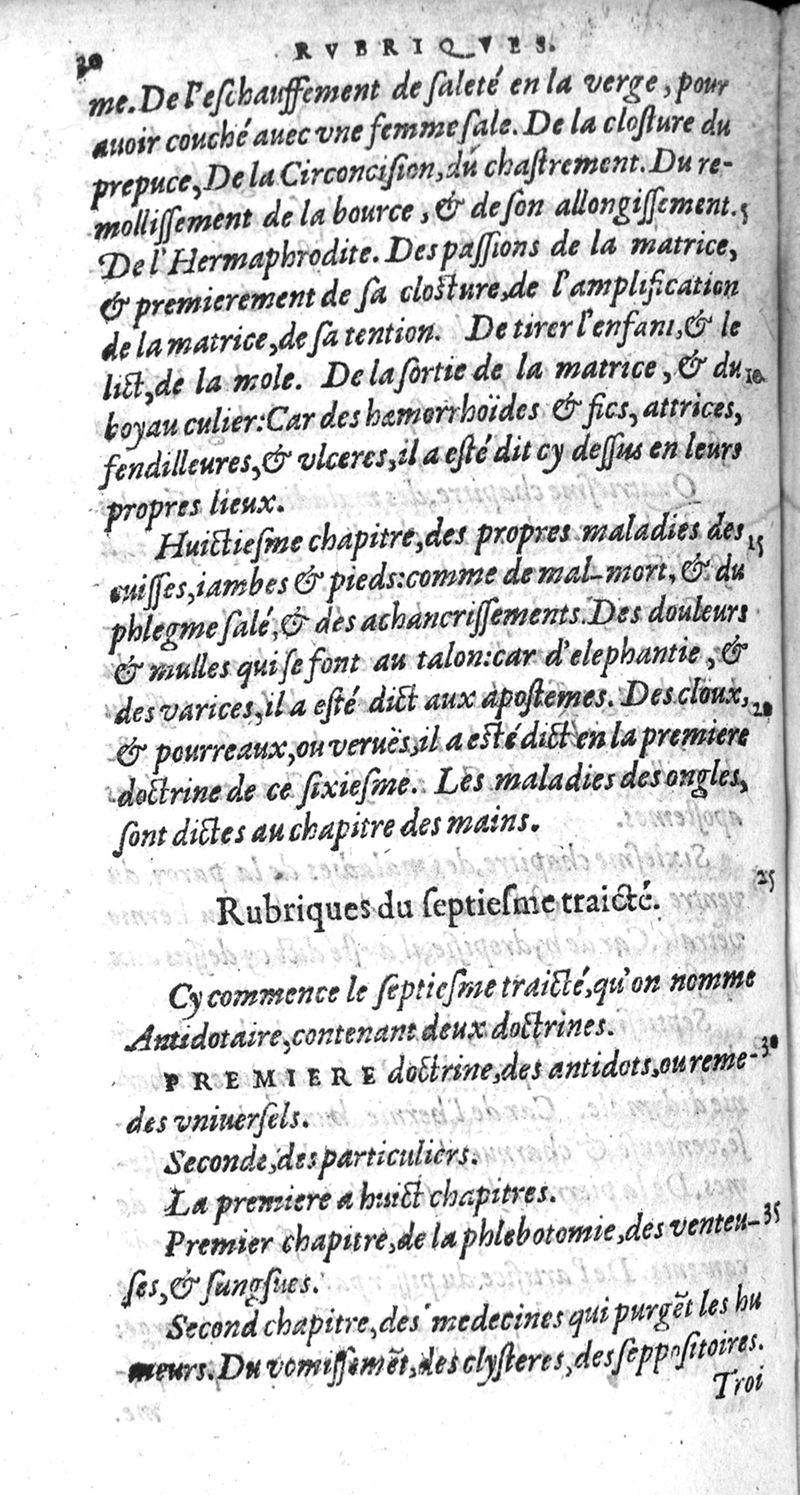 30 RVBRIQVES.
me. De l'eſchauffement de ſaleté en la verge, pour
auoir couché auec vne femme ſale. De la cloſture du
prepuce, De la Circonciſion, dú chaſtrement. Du re-
molliſſement de la bource, & de ſon allongiſſement. 5
De l'Hermaphrodite. Des paſſions de la matrice,
& premierement de ſa cloſture, de l'amplification
de la matrice, de ſa tention. De tirer l'enfant, & le
lict, de la mole. De la ſortie de la matrice, & du 10
boyau culier: Car des hæmorrhoïdes & fics, attrices,
fendilleures, & vlceres, il a eſté dit cy deſſus en leurs
propres lieux.
Huictieſme chapitre, des propres maladies des 15
cuiſſes, iambes & pieds: comme de mal-mort, & du
phlegme ſalé, & des achancriſſements. Des douleurs
& mulles qui ſe font au talon: car d'elephantie, &
des varices, il a eſté dict aux apoſtemes. Des cloux, 20
& pourreaux, ou veruës, il a eſté dict en la premiere
doctrine de ce ſixieſme. Les maladies des ongles,
ſont dictes au chapitre des mains.
25
Rubriques du ſeptieſme traicté.
Cy commence le ſeptieſme traicté, qu'on nomme
Antidotaire, contenant deux doctrines.
PREMIERE doctrine, des antidots, ou reme- 30
des vniuerſels.
Seconde, des particuliers.
La premiere a huict chapitres.
Premier chapitre, de la phlebotomie, des venteu- 35
ſes, & ſungſues.
Second chapitre, des medecines qui purgẽt les hu
meurs. Du vomiſſemẽt, des clyſteres, des ſeppoſitoires.
Troi